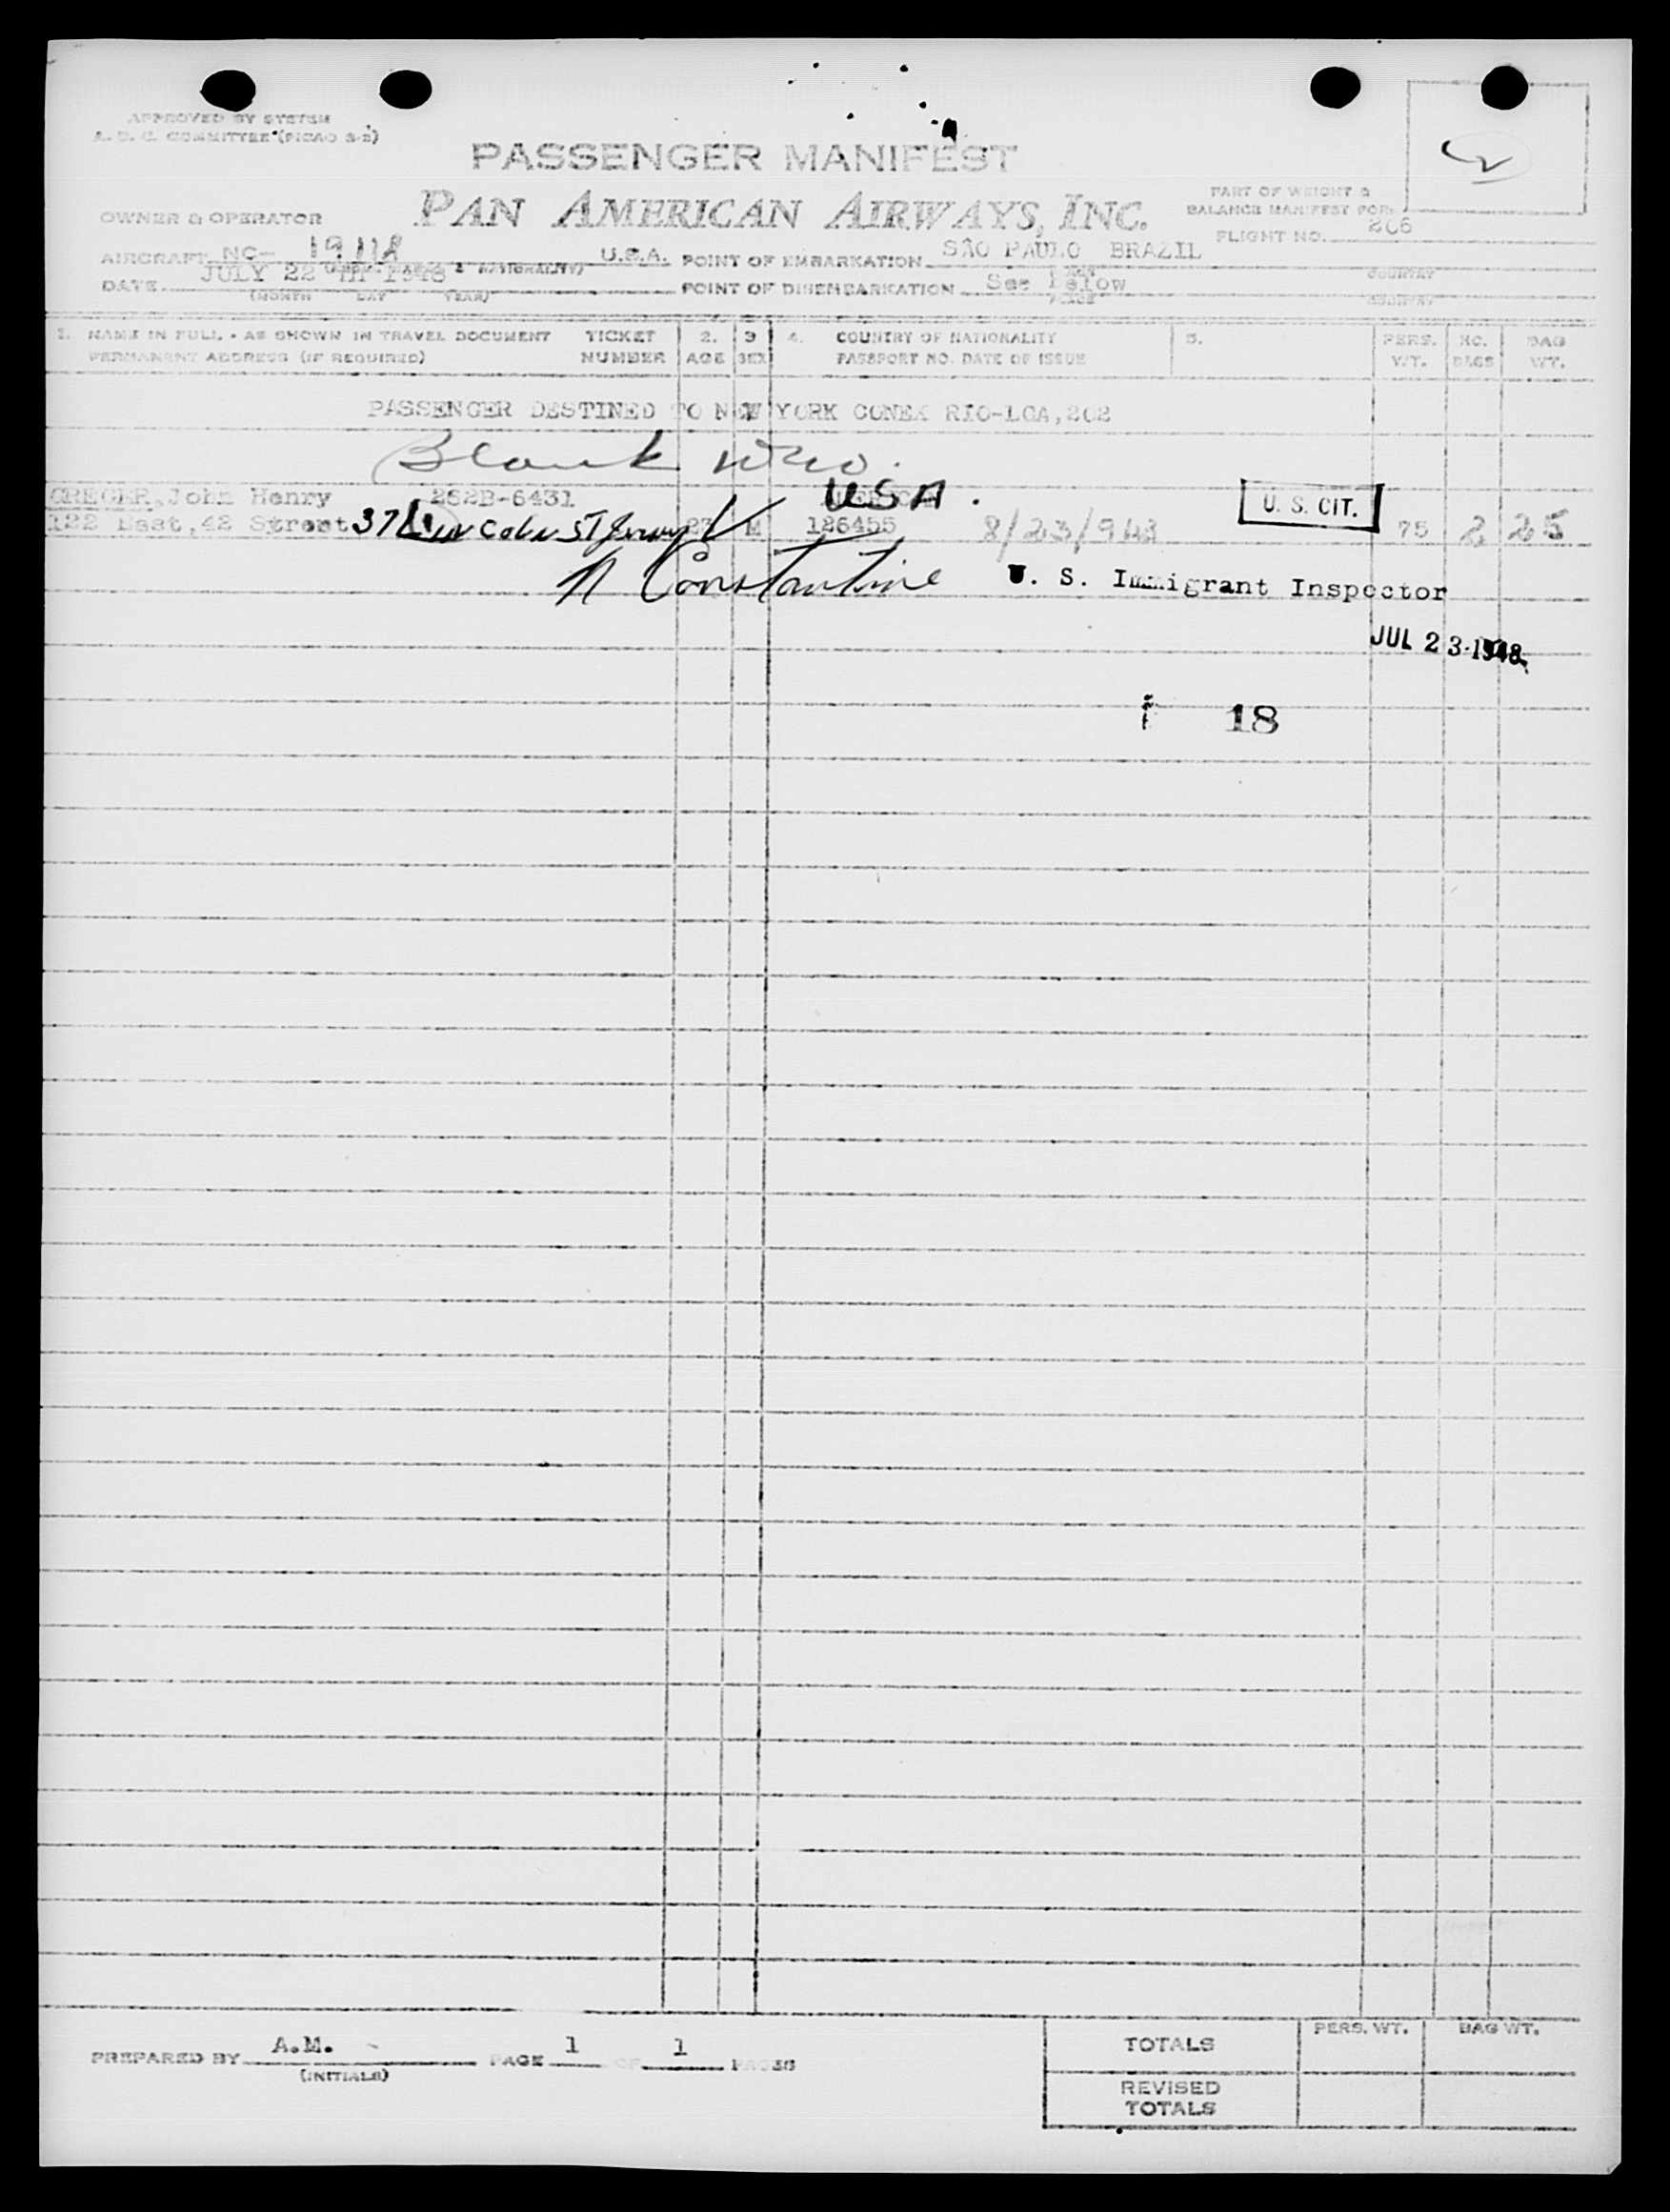 APPROVED BY SYSTEM
A. D. C. COMMITTEE (PICAO 3-2)
PASSENGER MANIFEST
PAN AMERICAN AIRWAYS, INC.
PART OF WEIGHT &
BALANCE MANIFEST FOR
OWNER & OPERATOR
FLIGHT NO. 206
AIRCRAFT NC- U.S.A. POINT OF EMBARKATION SÃO PAULO BRAZIL
DATE JULY 22 TH 1948 POINT OF DISEMBARKATION See Below
(MONTH DAY YEAR) PLACE COUNTRY
1. NAME IN FULL - AS SHOWN IN TRAVEL DOCUMENT TICKET 2. 3 4. COUNTRY OF NATIONALITY 5. PERS. NO. BAG
PERMANENT ADDRESS (IF REQUIRED) NUMBER AGE SEX PASSPORT NO. DATE OF ISSUE WT. BAGS WT.
PASSENGER DESTINED TO NEW YORK CONEX RIO-LGA, 202
Blank
GREGER, John Henry 262B-6431 USA. U. S. CIT.
122 East, 42 Street 37 ST 23 M 126455 75 2 25
N Constantine U. S. Immigrant Inspector
JUL 23 1948
18
PREPARED BY A.M. PAGE 1 OF 1 PAGES
(INITIALS)
TOTALS PERS. WT. BAG WT.
REVISED
TOTALS